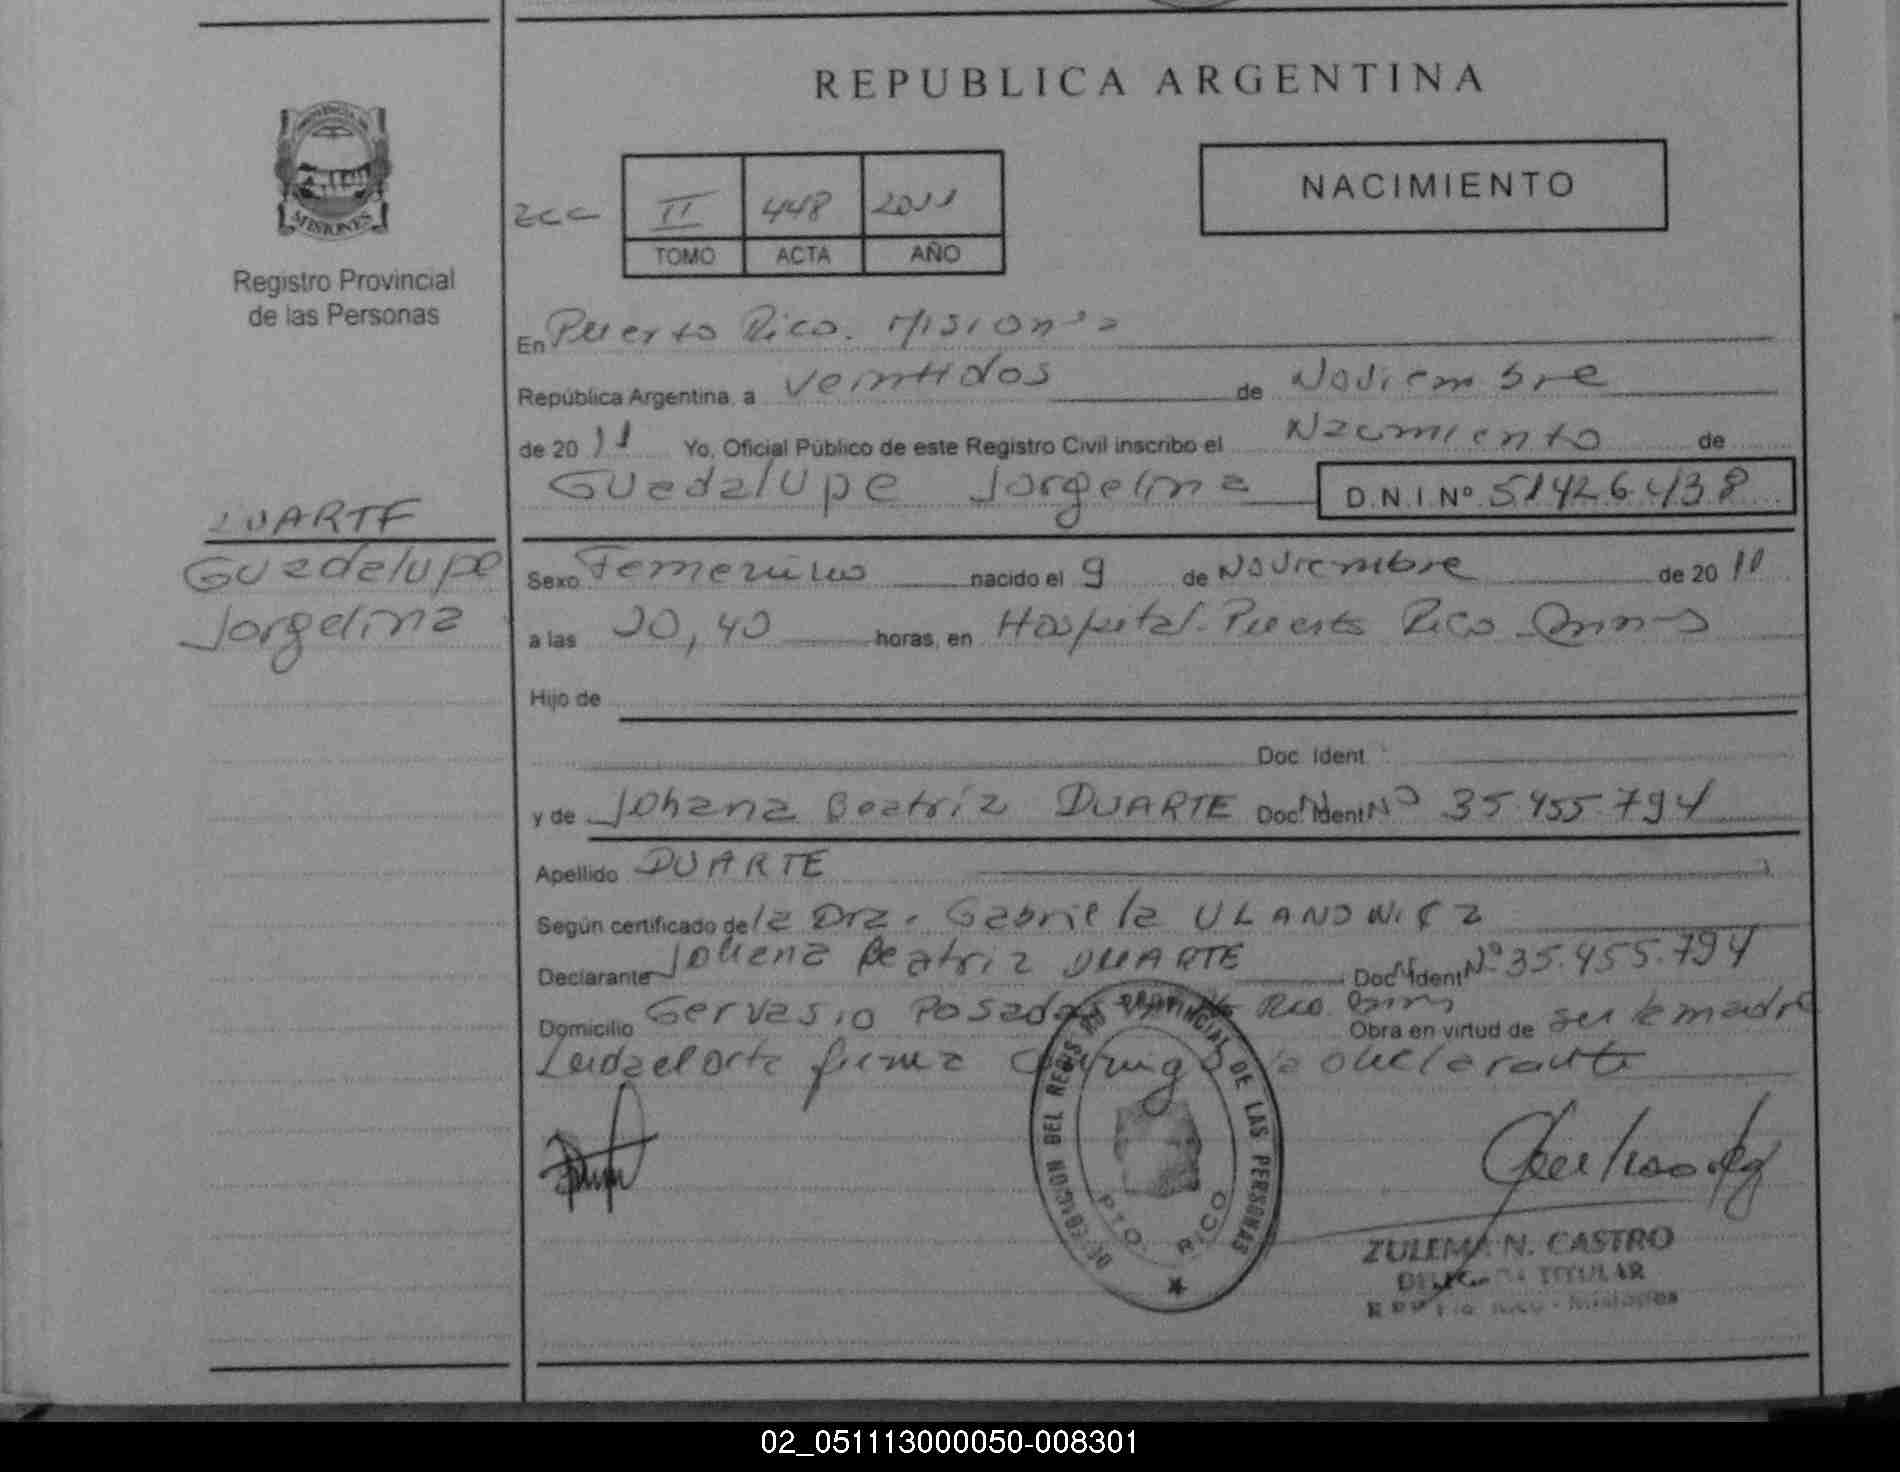 REPUBLICA ARGENTINA
PROVINCIA DE
MISIONES
Registro Provincial
de las Personas
II 448 2011
TOMO ACTA AÑO
NACIMIENTO
En Puerto Rico. Misiones
República Argentina, a veintidos de Noviembre
de 2011 Yo, Oficial Público de este Registro Civil inscribo el Nacimiento de
Guadalupe Jorgelina D.N.I.Nº 51426438
DUARTE
Guadalupe
Jorgelina
Sexo Femenino nacido el 9 de Noviembre de 2011
a las 20,40 horas, en Hospital Puerto Rico
Hijo de
Doc. Ident.
y de Johana Beatriz DUARTE Doc. Ident Nº 35.455.794
Apellido DUARTE
Según certificado de la Dra. Gabriela ULANOWICZ
Declarante Johana Beatriz DUARTE Doc. Ident Nº 35.455.794
Domicilio Gervasio Posadas Rico Obra en virtud de ser la madre
Leida el acta firma conmigo la declarante
DELEGACION DEL REGISTRO PROVINCIAL DE LAS PERSONAS
PTO. RICO
ZULEMA N. CASTRO
DELEGADA TITULAR
R.P.P. Pto. Rico - Misiones
02_051113000050-008301